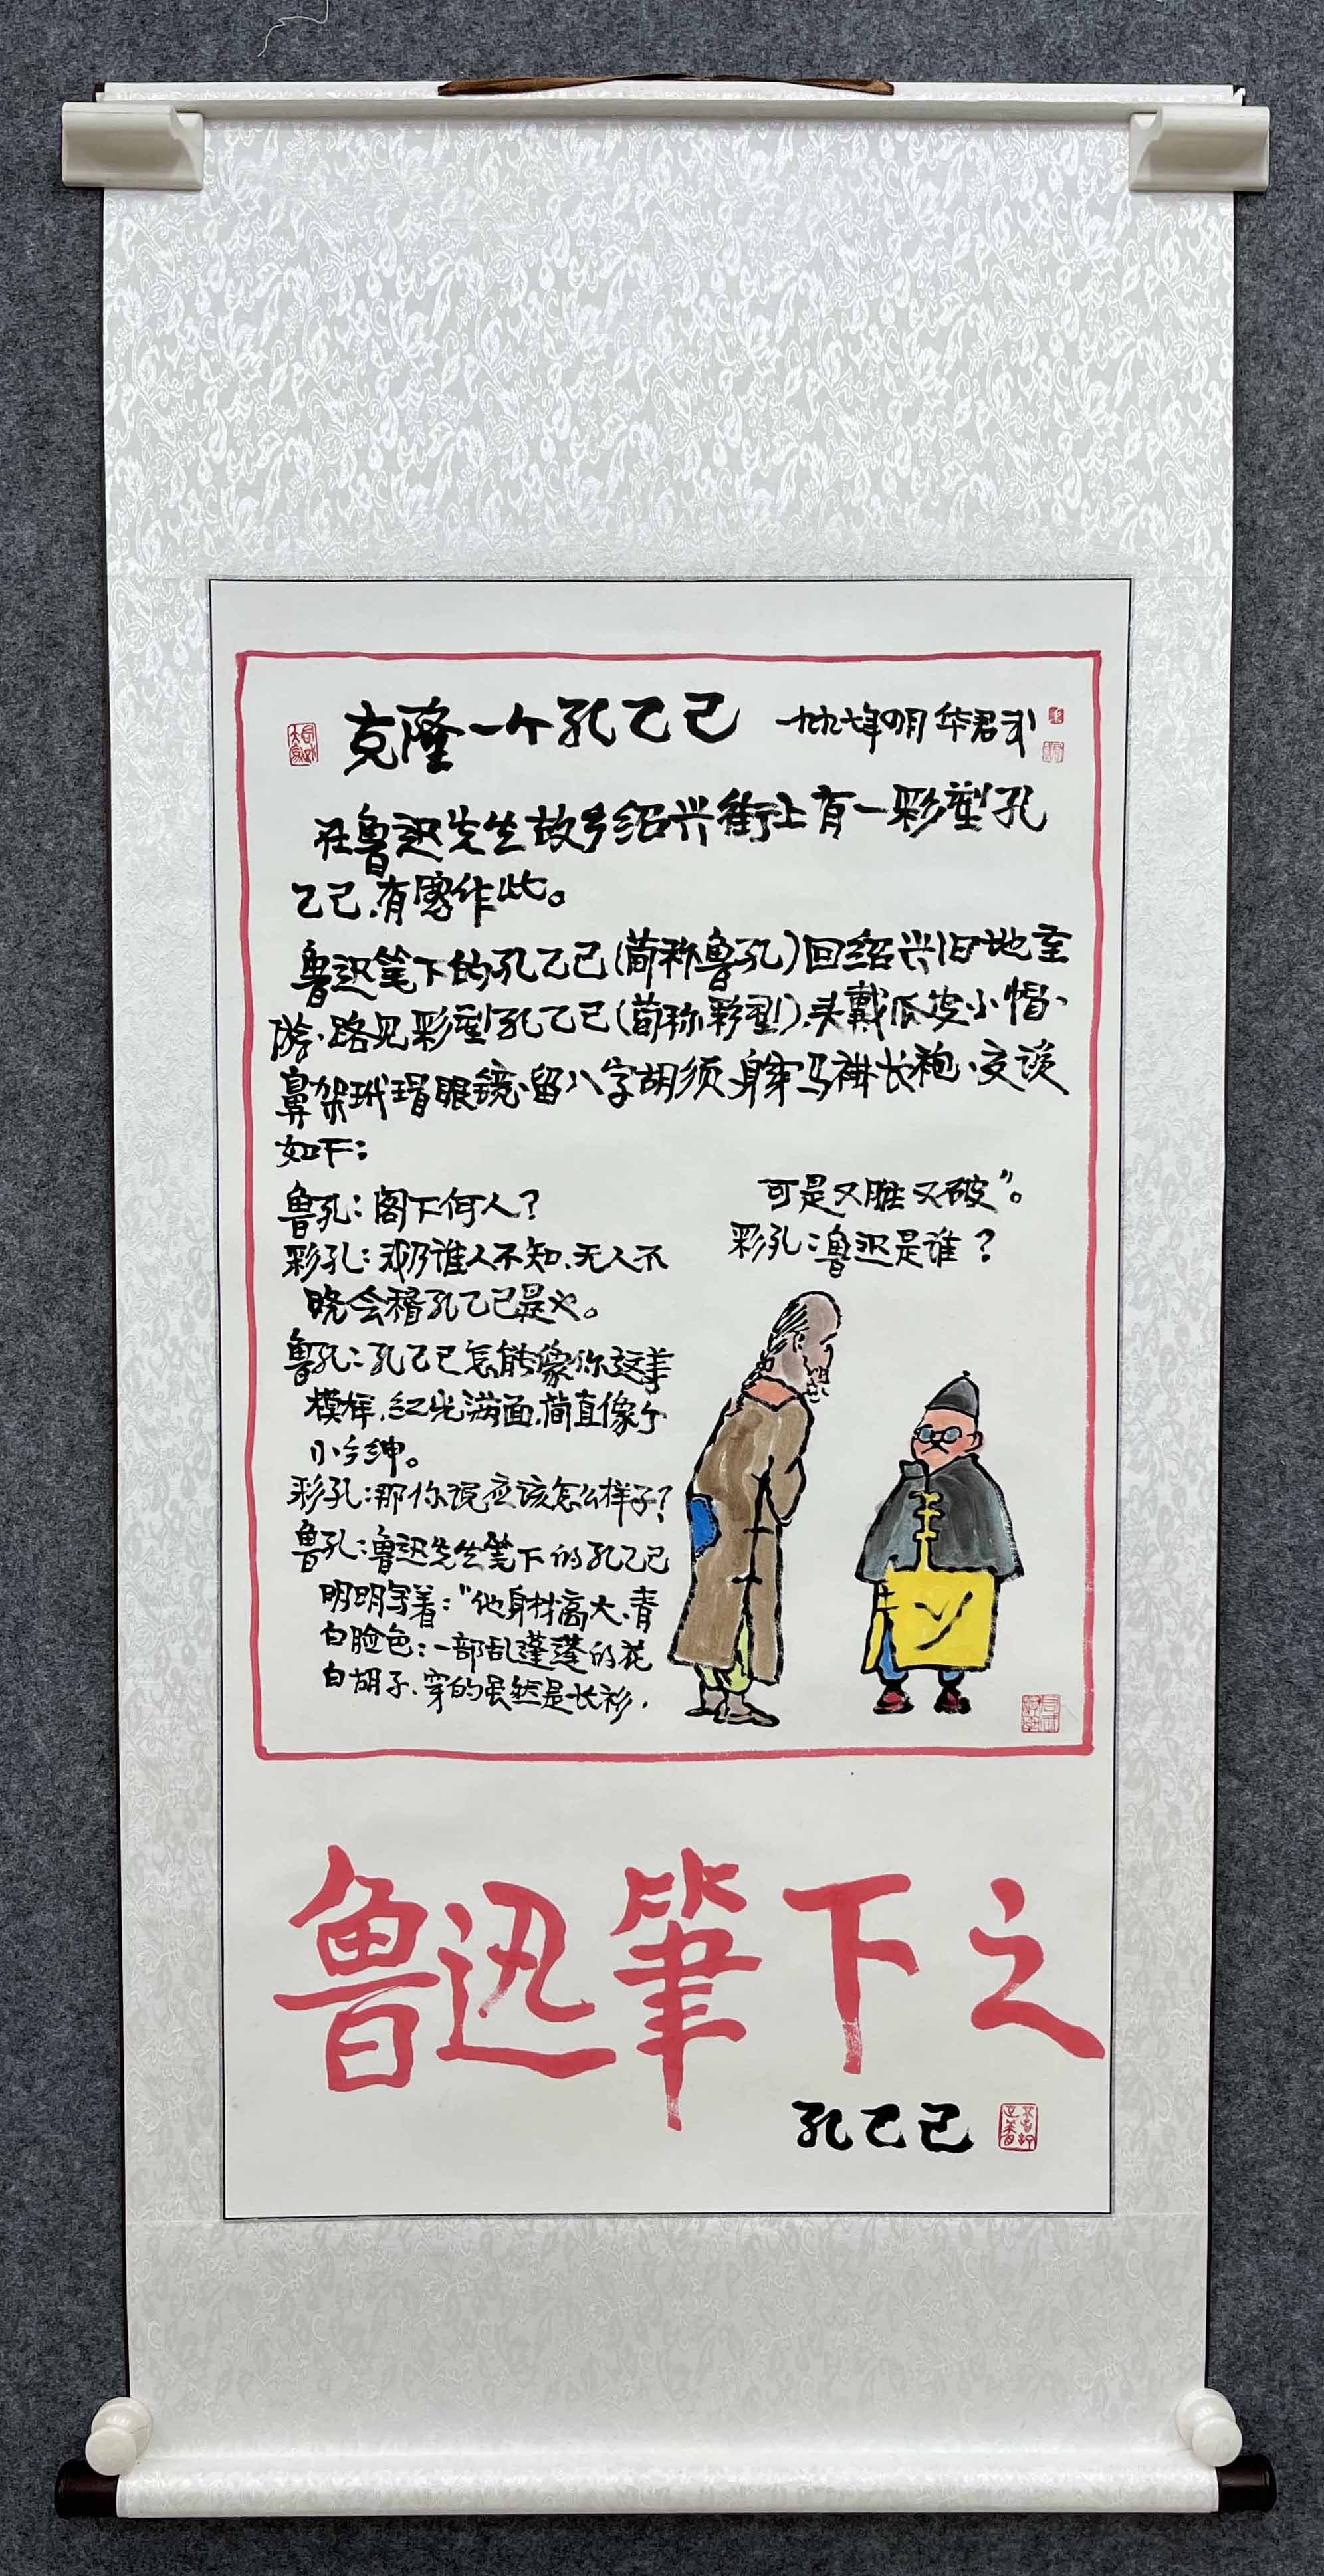 克隆一个孔乙己 一九九七年四月 华君武
在鲁迅先生故乡绍兴街上有一彩塑孔
乙己、有感作此。
鲁迅笔下的孔乙己(简称鲁孔)回绍兴旧地重
游、路见彩塑孔乙己(简称彩塑)、头戴瓜皮小帽、
鼻架玳瑁眼镜、留八字胡须、身穿马褂长袍、交谈
如下：
鲁孔：阁下何人？
彩孔：我乃谁人不知、无人不
晓会稽孔乙己是也。
鲁孔：孔乙己怎能像你这等
模样、红光满面、简直像个
小乡绅。
彩孔：那你说应该怎么样子？
鲁孔：鲁迅先生笔下的孔乙己
明明写着："他身材高大、青
白脸色；一部乱蓬蓬的花
白胡子、穿的虽然是长衫，
可是又脏又破"。
彩孔：鲁迅是谁？
鲁迅筆下之
孔乙己